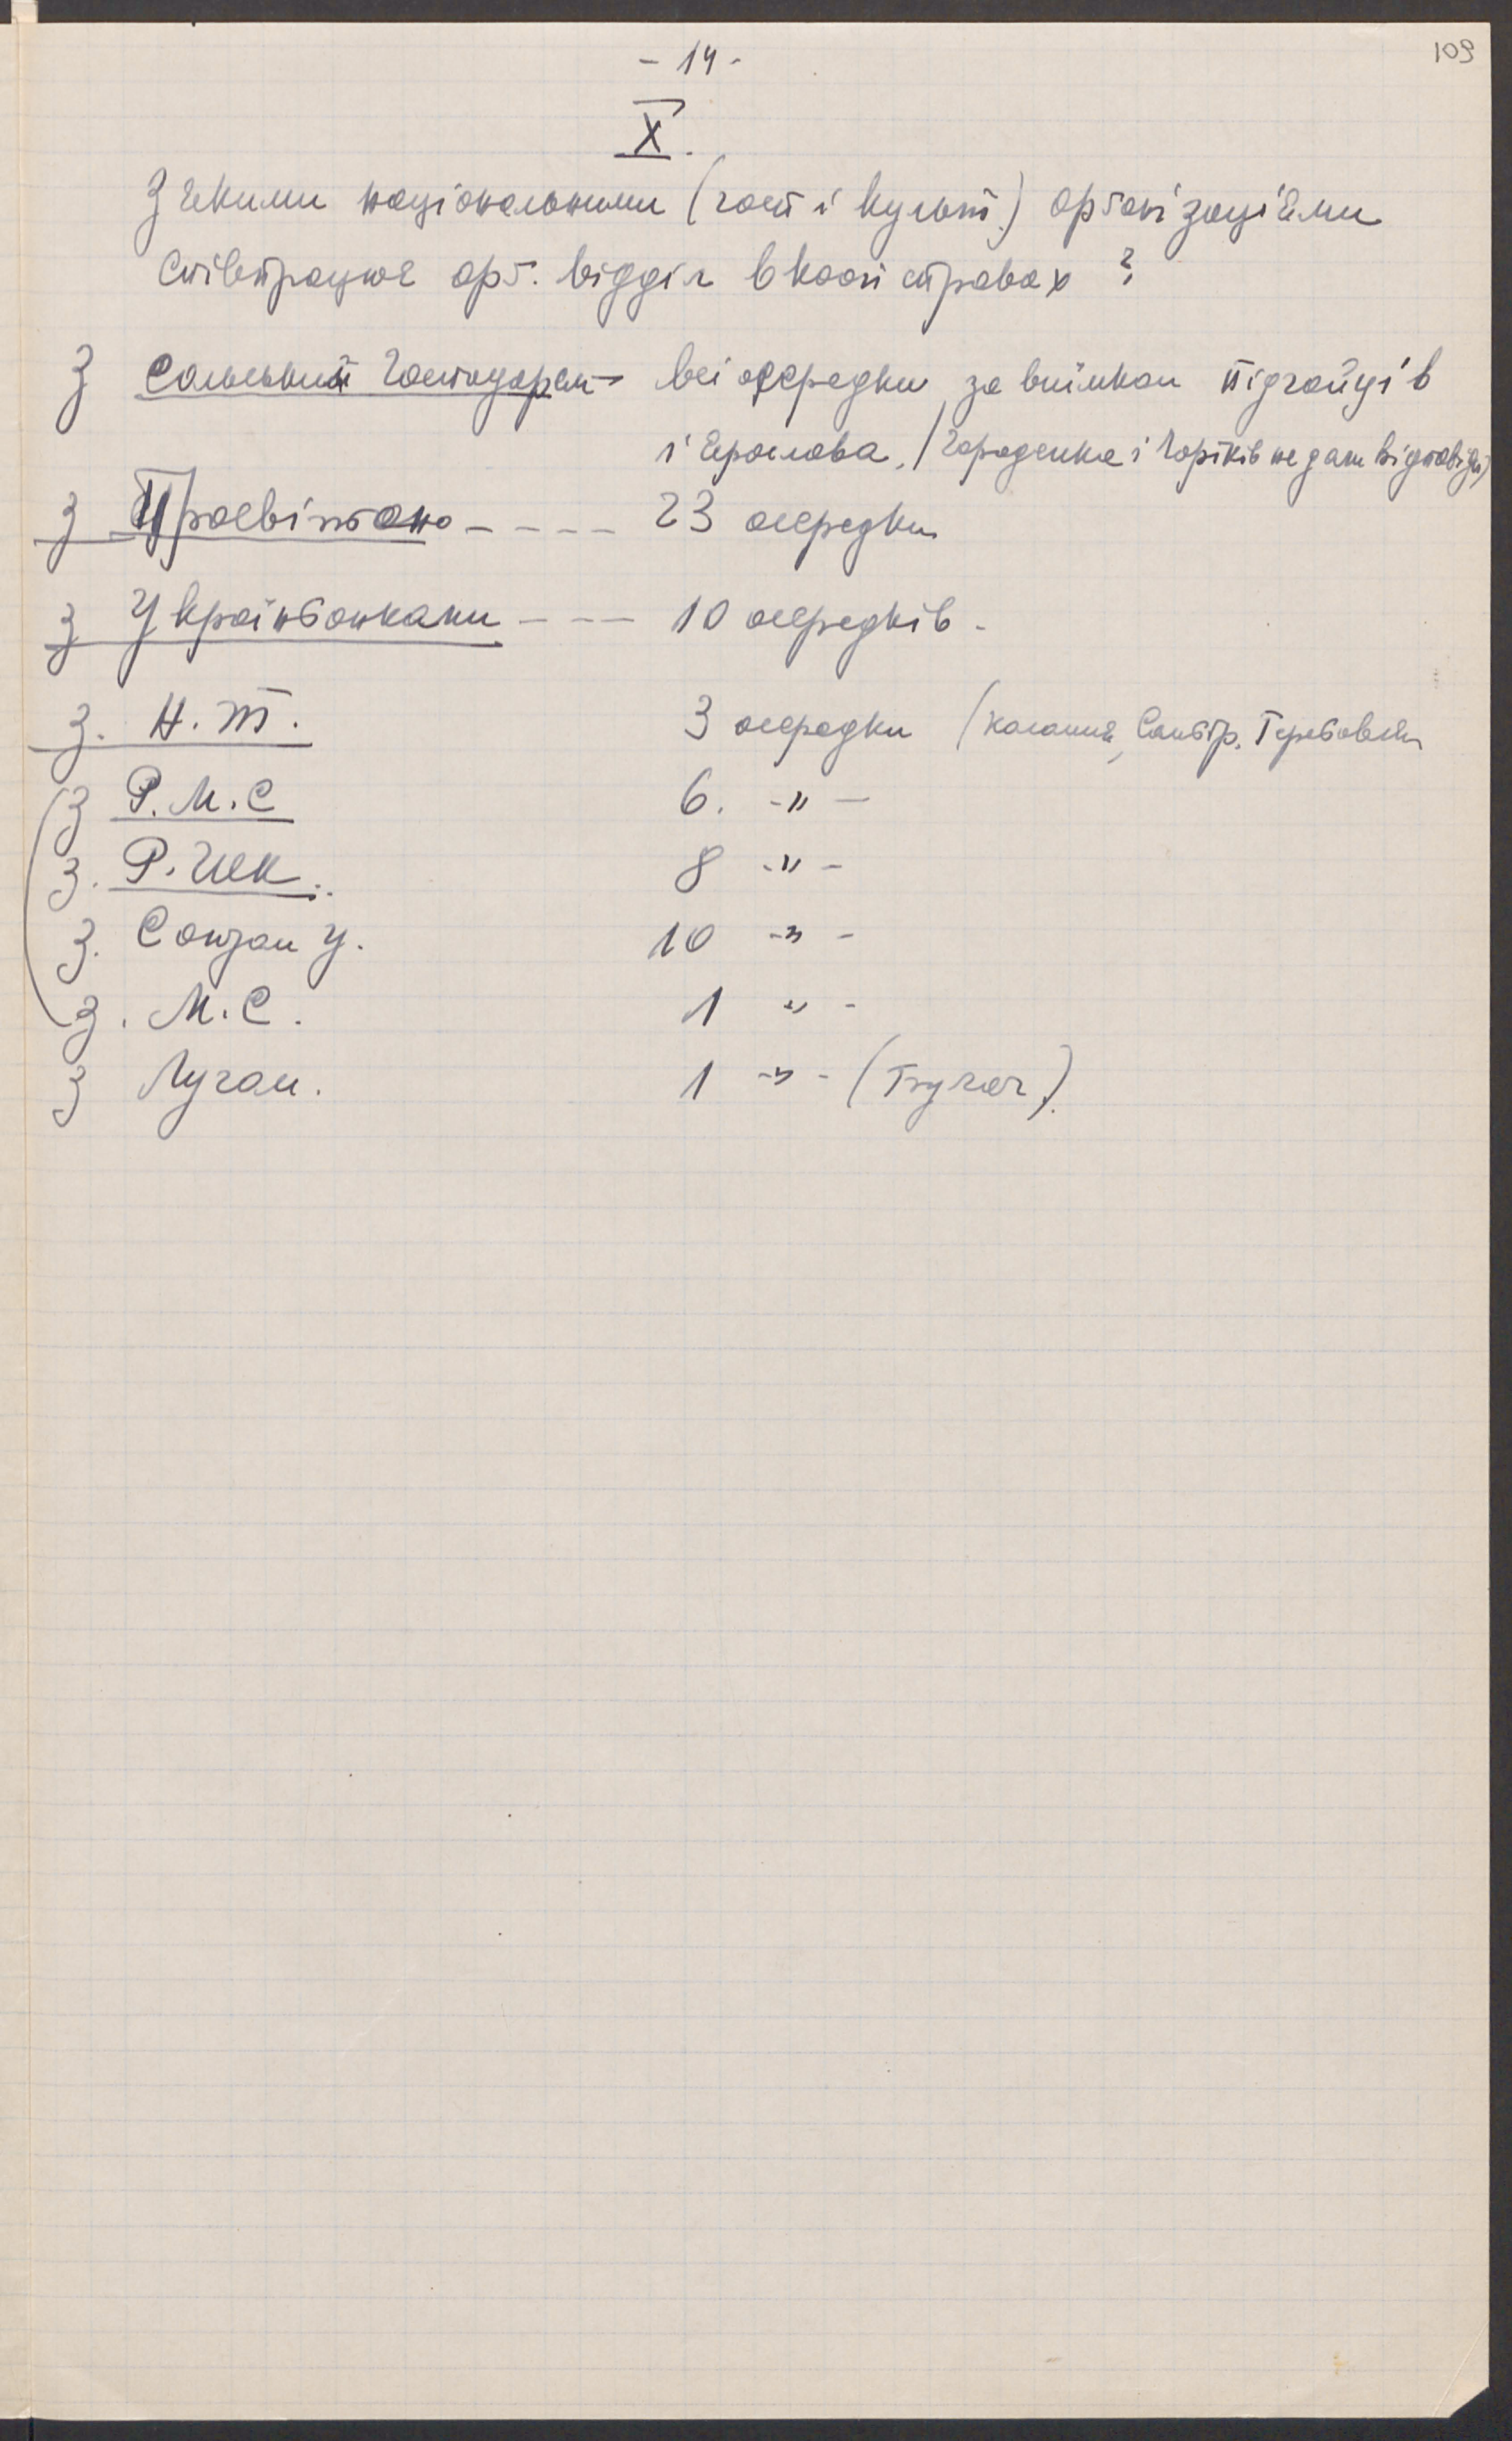 - 14 -
109
X.
З якими національними (госп і культ.) орґанізаціями
співпрацює орґ. відділ в кооп справах ?
З Сільський Господарем - всі осередки за виїмком Підгайців
і Ярослава. (Городенка і Чортків не дали відповіді)
з Просвітою - - - - 23 осередки
з Українбанками - - - 10 осередків -
з. Н. Т. 3 осередки (Коломия, Самбір, Теребовля
з Р. М. С 6. -"-
з. Р. 8 -"-
з. Союзом У. 10 -"-
з. М. С. 1 " -
з Лугом. 1 -"- (Бучач).